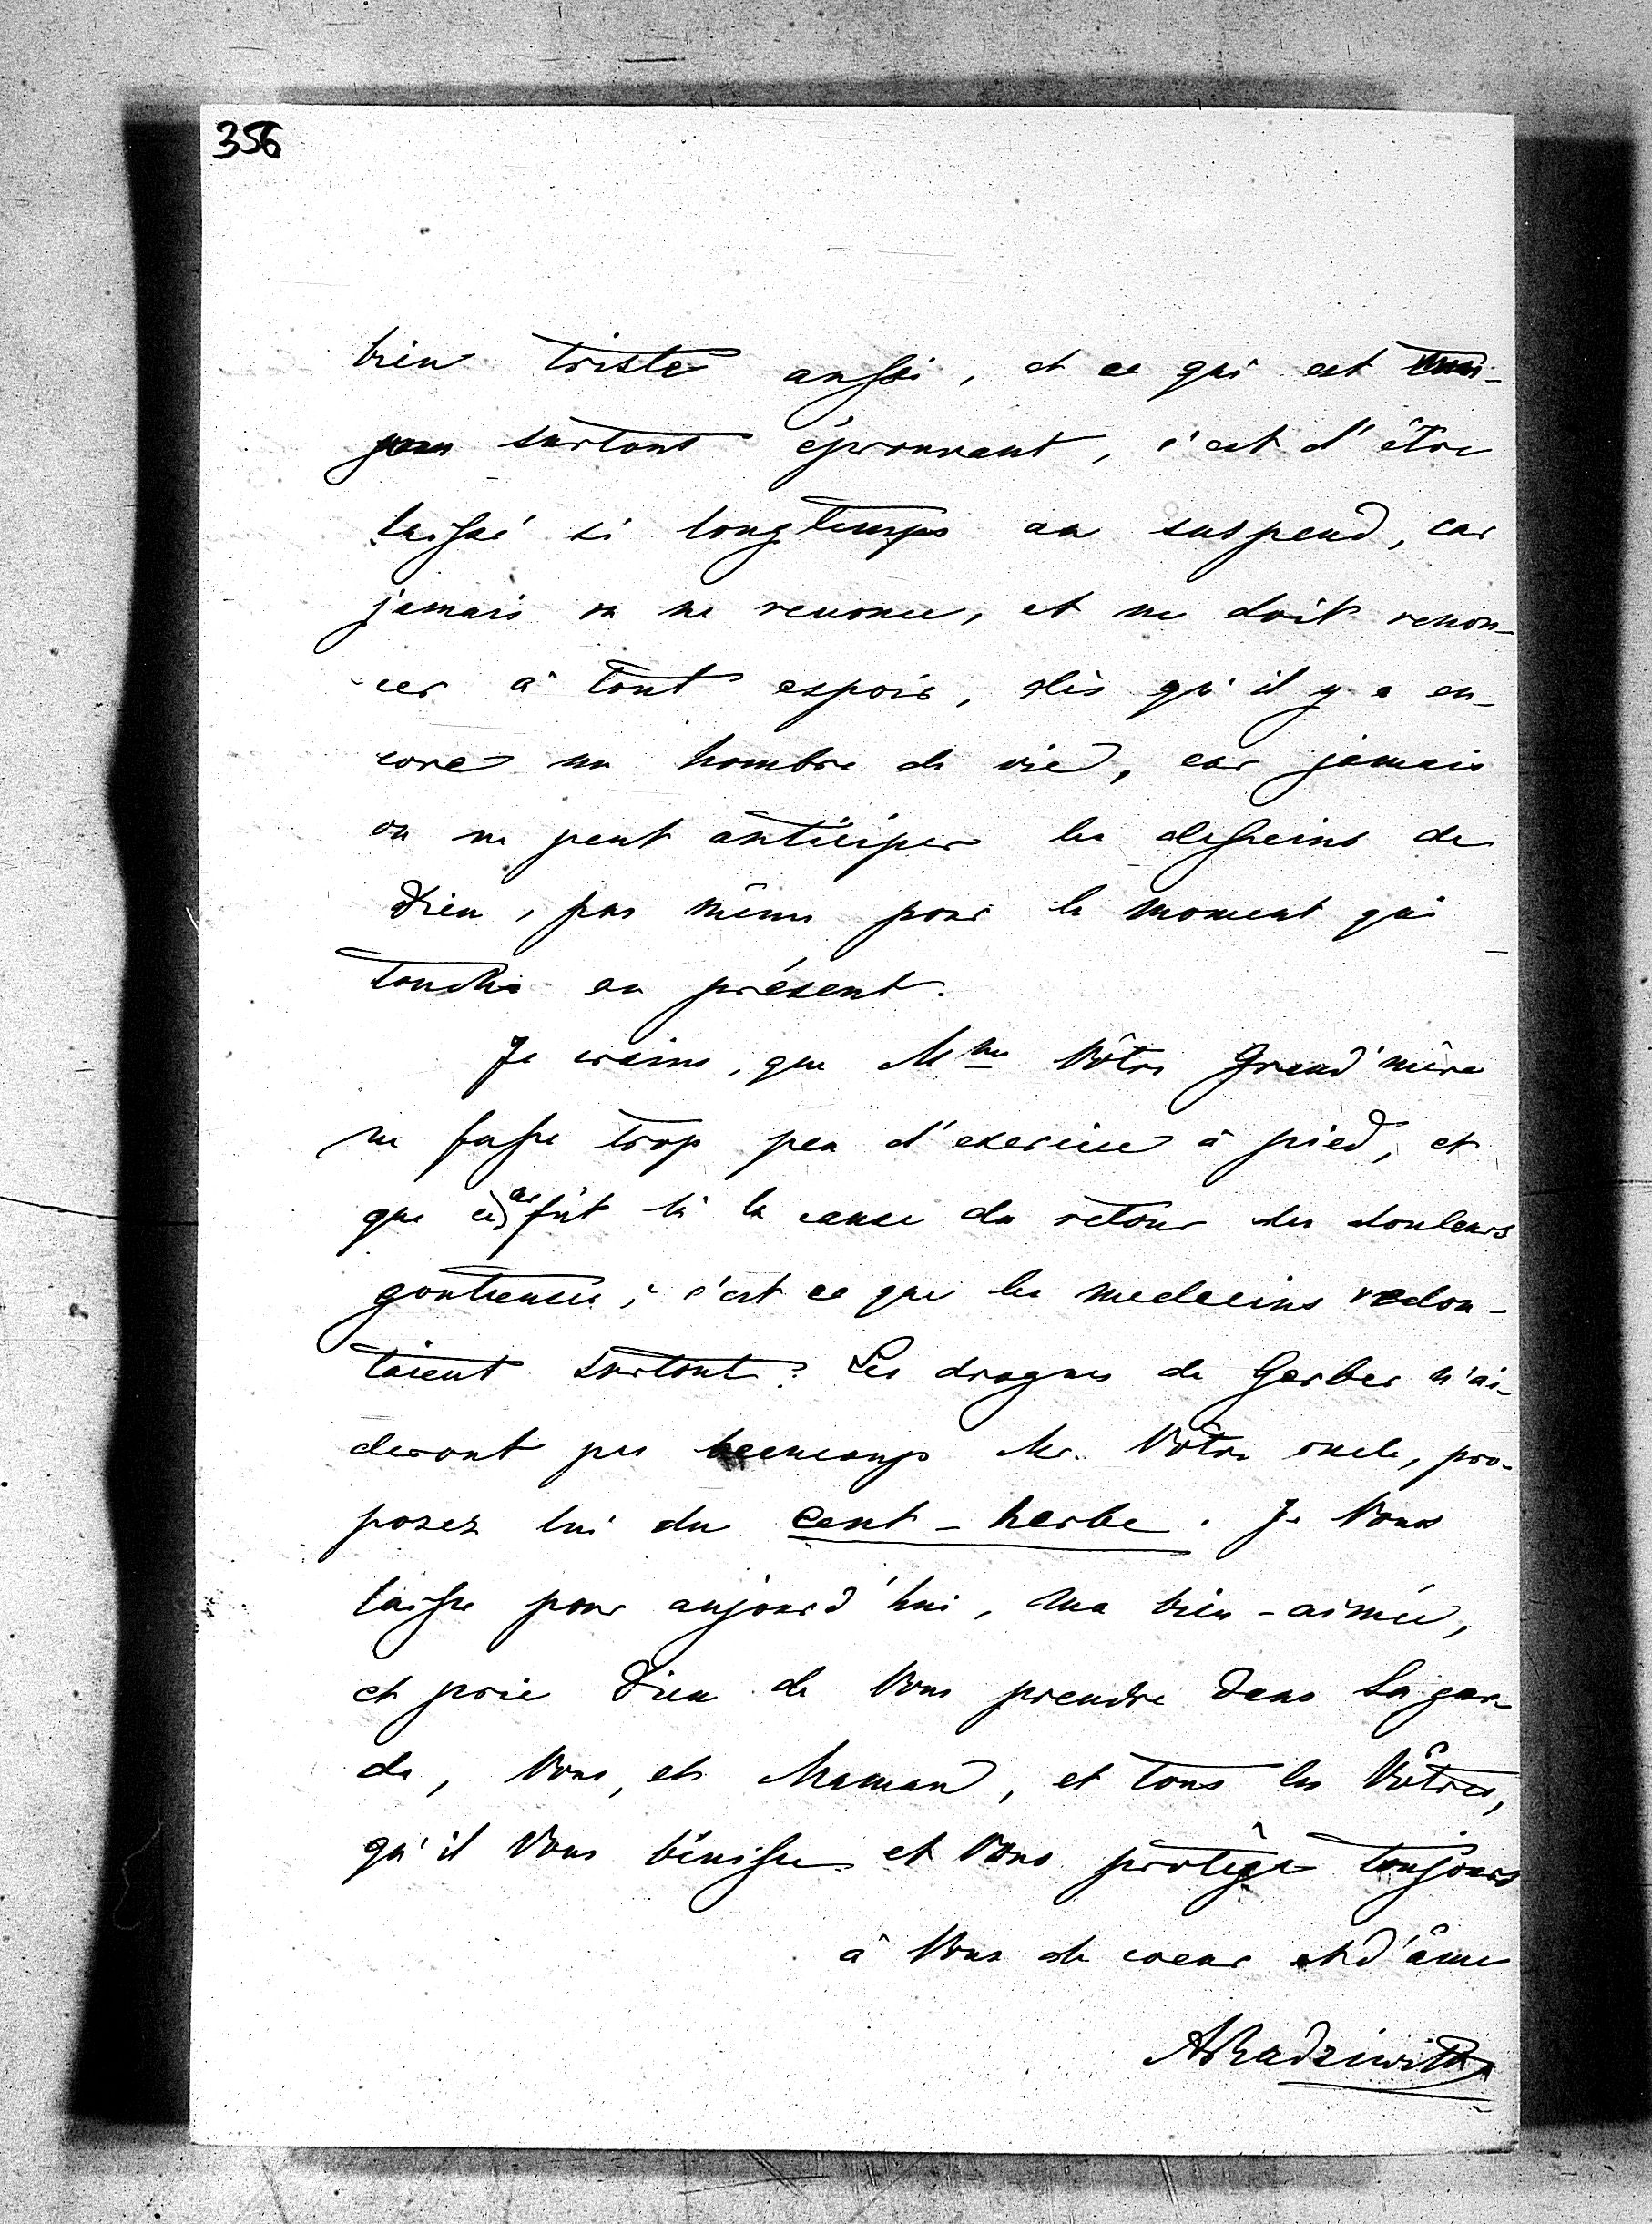 356
bien triste aussi, et ce qui est
surtout éprouvant, c'est d'être
laissé si longtemps au suspend, car
jamais on ne renonce, et ne doit renon-
cer à tout espoir, dès qu'il y a en-
core un hombre de vie, car jamais
on ne peut anticiper les desseins de
Dieu, pas même pour le moment qui
touche au présent.
Je crains, que Mme Vôtre Grand'mère
ne fasse trop peu d'exercice à pied, et
que ce fût là la cause du retour des douleurs
goutteuses, c'est ce que les medecins redou-
taient surtout? Les drogues de Gerber n'ai-
deront pas beaucoup Mr. Vôtre oncle, pro-
posez lui du cent-herbe. Je Vous
laisse pour aujourd'hui, ma bien-aimée,
et prie Dieu de Vous prendre dans Sa gar-
de, Vous, et Maman, et tous les Vôtres,
qu'il Vous bénisse et Vous protège toujours
à Vous de coeur et d'âme
ARadziwiłł